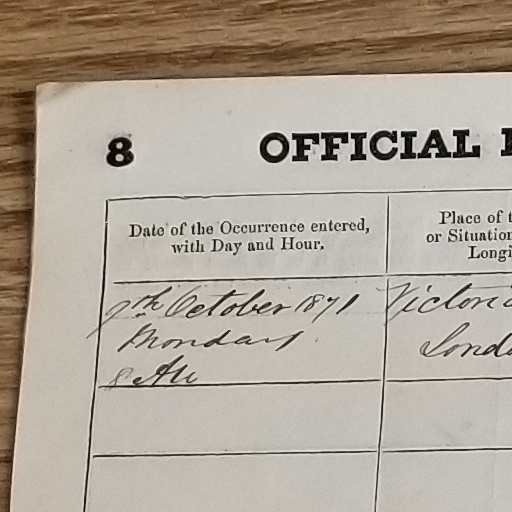 8 OFFICIAL
Date of the Occurrence entered,
with Day and Hour.
Place of
or Situation
Longi
9th October 1871
Monday
8 AM
Victoria
Londo